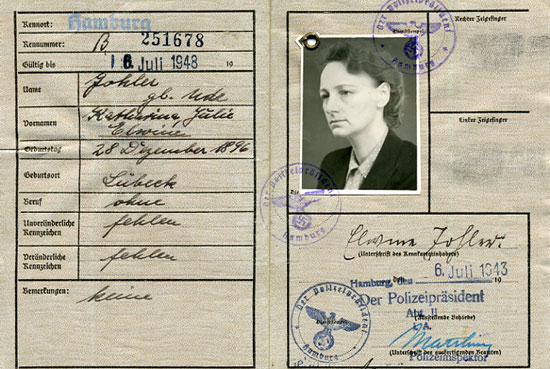 Kennort: Hamburg
Kennummer: B 251678
Gültig bis 16. Juli 1948 19
Name Johler
gb. Ude
Vornamen Katharina Julie
Elwine
Geburtstag 28 Dezember 1896
Geburtsort Lübeck
Beruf ohne
Unveränderliche Kennzeichen fehlen
Veränderliche Kennzeichen fehlen
Bemerkungen: keine
Der Polizeipräsident
Hamburg
Rechter Zeigefinger
Linker Zeigefinger
Der Polizeipräsident
Hamburg
Elwine Johler
(Unterschrift des Kennkarteninhabers)
Hamburg, den 6. Juli 1943 19
Der Polizeipräsident
Abt. II
(Ausstellende Behörde)
I.A.
(Unterschrift des ausfertigenden Beamten)
Polizeiinspektor
Der Polizeipräsident
Dienststempel
Hamburg